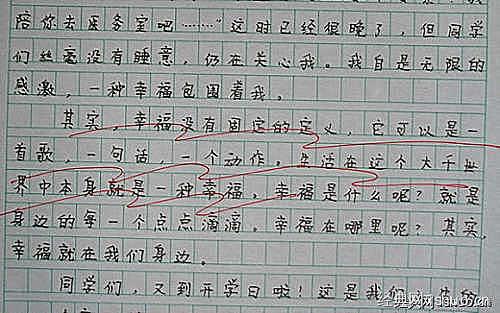 陪你去医务室吧……"这时已经很晚了，但同学
们丝毫没有睡意，仍在关心我。我自是无限的
感激，一种幸福包围着我。
其实，幸福没有固定的定义，它可以是一
首歌，一句话，一个动作。生活在这个大千世
界中本身就是一种幸福，幸福是什么呢？就是
身边的每一个点点滴滴。幸福在哪里呢？其实，
幸福就在我们身边。
同学们，又到开学日啦！这是我们
经典网